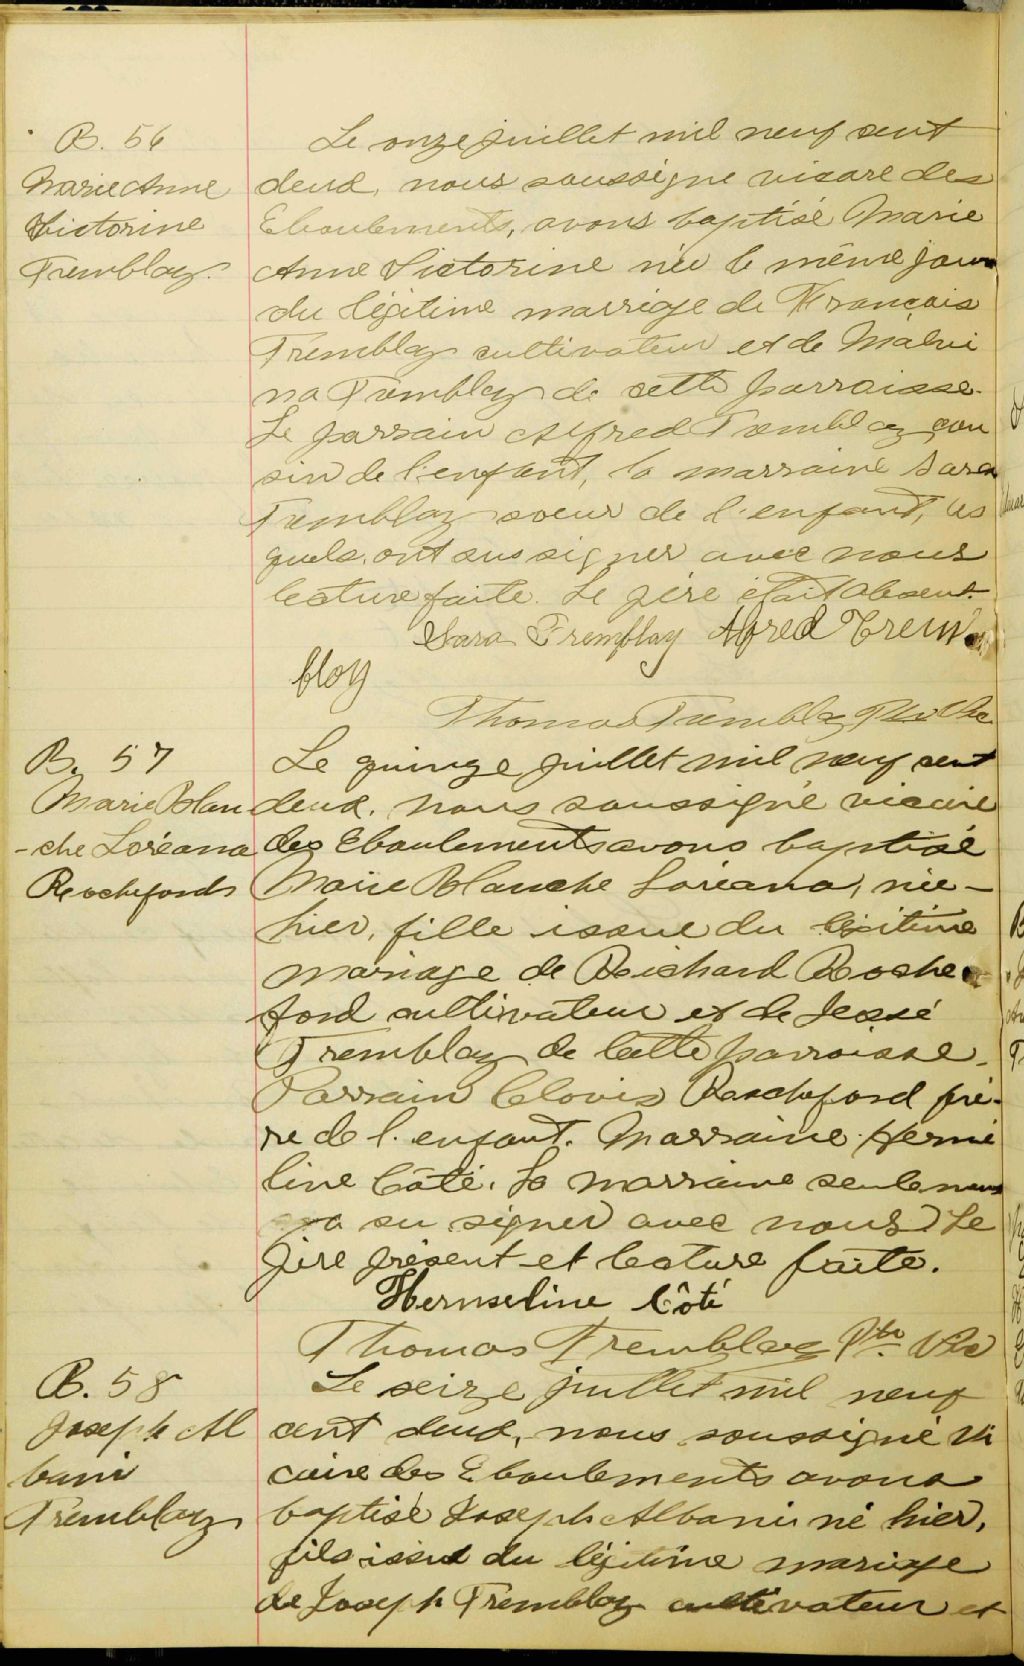 B. 56
Marie Anne
Victorine
Tremblay.
Le onze juillet mil neuf cent
deux, nous soussigné vicaire des
Eboulements, avons baptisé Marie
Anne Victorine née le même jour
du légitime marriage de François
Tremblay cultivateur et de Malvi
na Tremblay de cette parroisse.
Le parrain Alfred Tremblay, cou
sin de l'enfant, la marraine Sara
Tremblay soeur de l'enfant, les
quels ont su signer avec nous
lecture faite. Le père était absent.
Sara Tremblay Alfred Trem
blay
Thomas Tremblay Ptre Vic
B. 57
Marie Blan
-che Loréana
Rochefords
Le quinze juillet mil neuf cent
deux, nous soussigné vicaire
des Eboulements avons baptisé
Marie Blanche Loréana, née
hier, fille issue du légitime
mariage de Richard Roche
ford cultivateur et de Jessé
Tremblay de cette parroisse.
Parrain Clovis Rochefond frè-
re de l'enfant. Marraine Hermé
line Côté. La marraine seulement
a su signer avec nous Le
père présent et lecture faite.
Hermeline Côté
Thomas Tremblay Ptre Vic
B. 58
Joseph Al
bani
Tremblay
Le seize juillet mil neuf
cent deux, nous soussigné vi
caire des Eboulements avons
baptisé Joseph Albani né hier,
fils issu du légitime mariage
de Joseph Tremblay cultivateur et